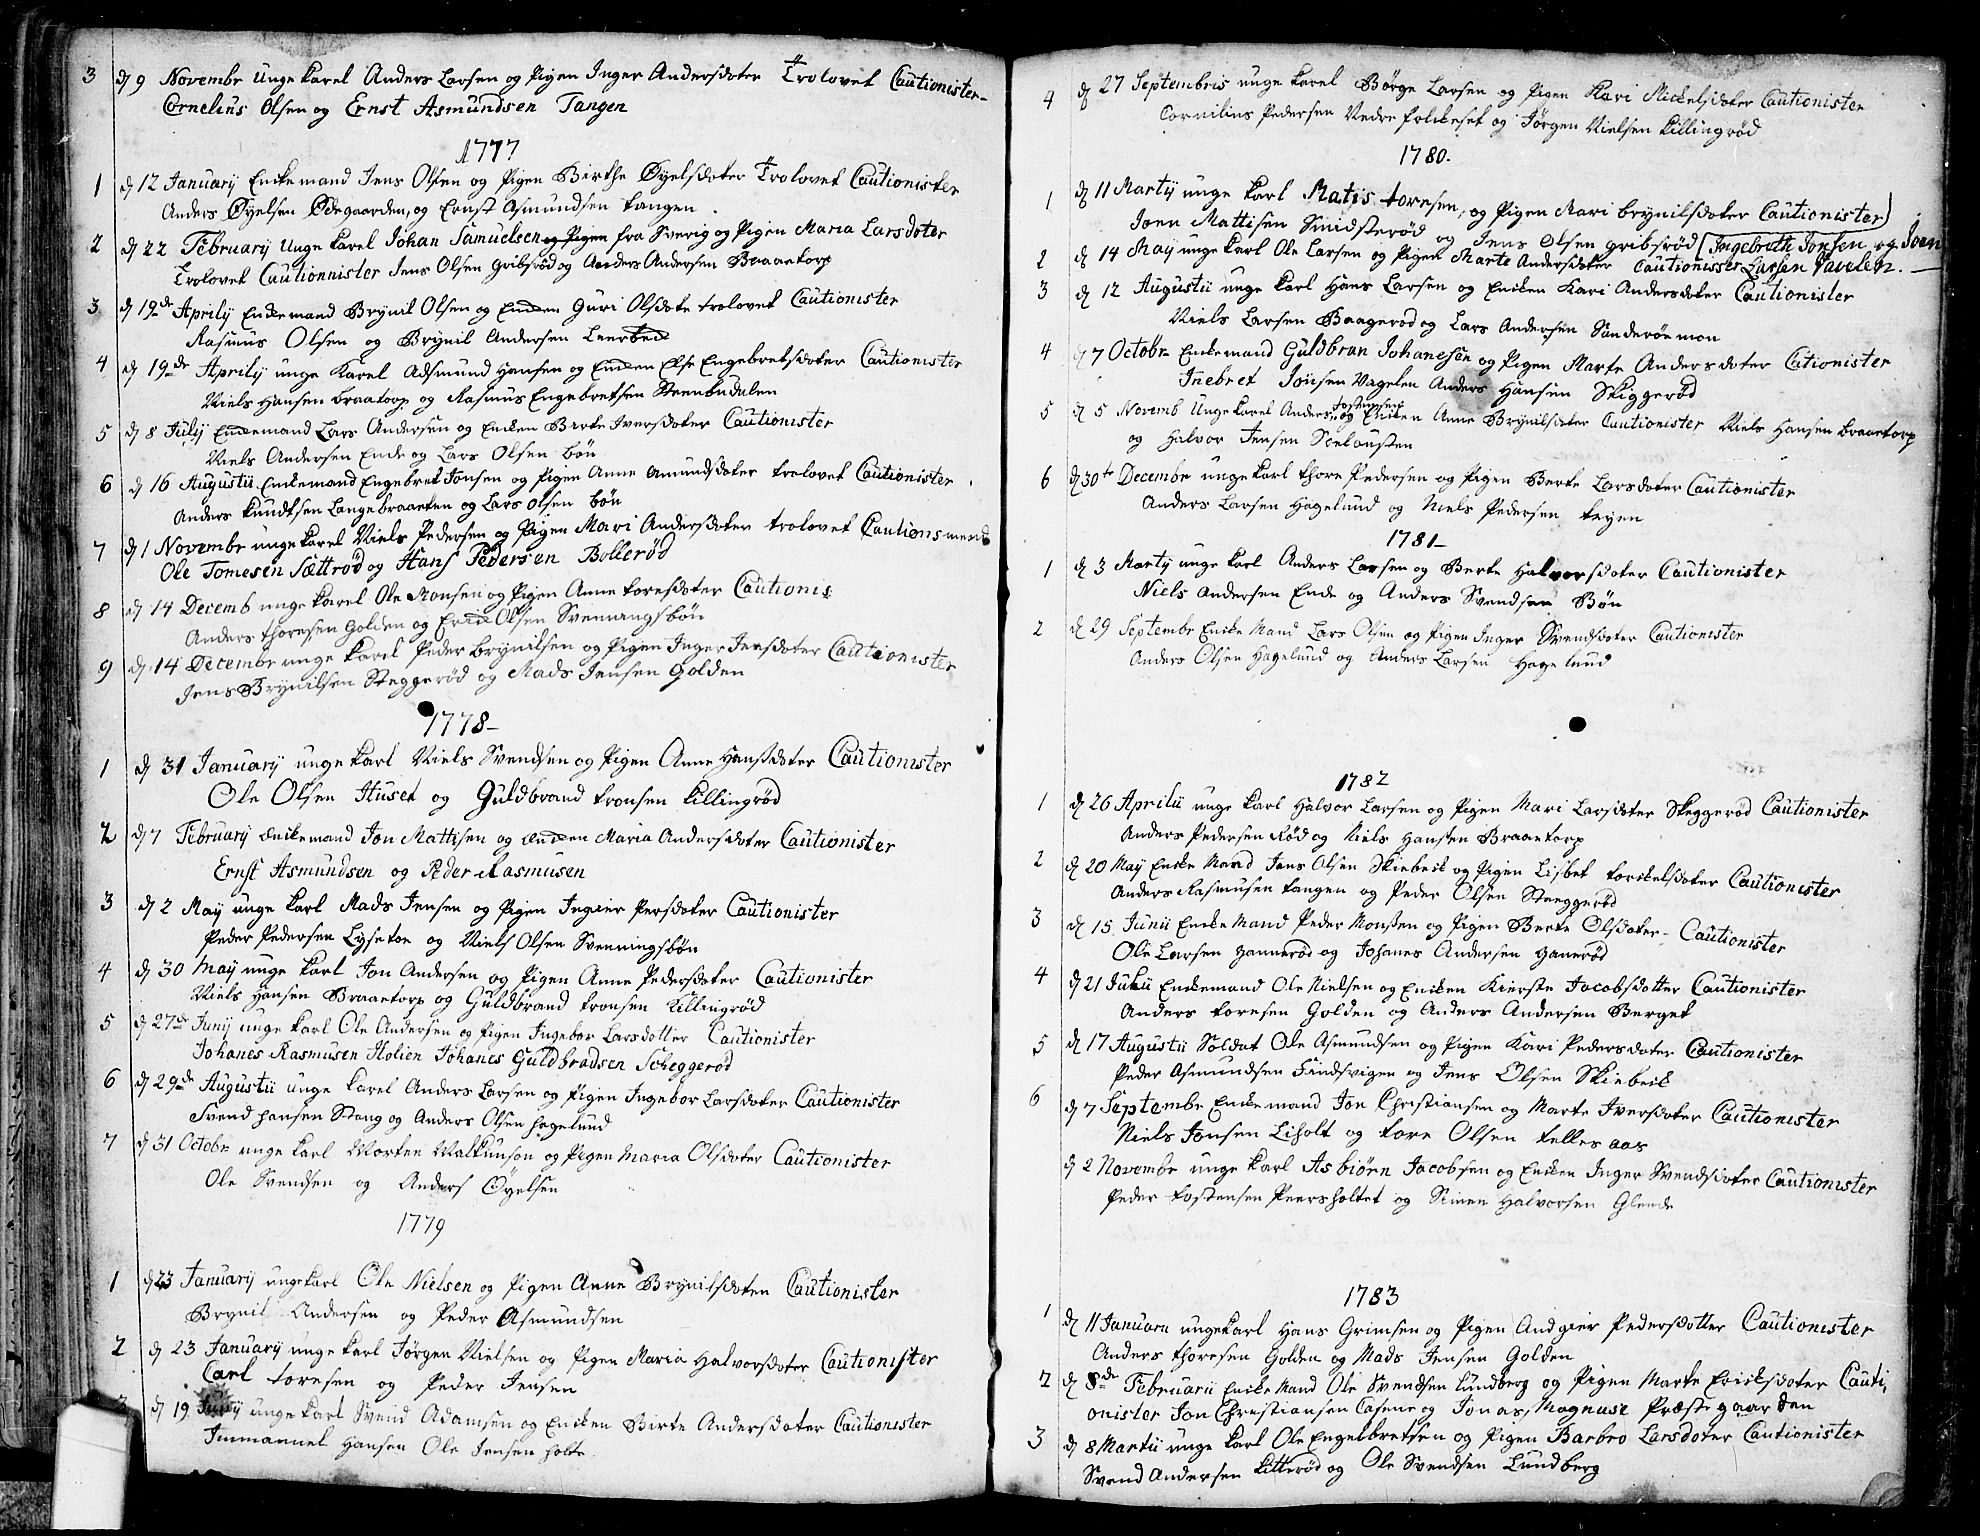 3 d 9 Novembr Unge karel Anders Larsen og Pigen Inger Andersdoter Trolovet Cautionister
Cornelius Olsen og Ernst Asmundsen Tangen
1777
1 d 12 January Enckemand Jens Olsen og Pigen Birthe Øyelsdoter Trolovet Cautionister
Anders Øyelsen Ødegaarden, og Ernst Asmundsen tangen
2 d 22 February Unge karel Johan Samuelsen og Pigen fra Sverig og Pigen Maria Larsdoter
Trolovet Cautionnister Jens Olsen Gribsrød og Anders Andersen Braaetorp
3 d 19de Aprily Enckemand Brynil Olsen og Encken Guri Olsdote trolovet Cautionister
Rasmus Olsen og Brynil Andersen
4 d 19de Aprily unge Karel Adsmund Hansen og Encken Else Engebretsdoter Cautionister
Niels Hansen braatorp og Rasmus Engebretsen Steenbudalen
5 d 8 July Enckemand Lars Andersen og Encken Birte Iversdoter Cautionister
Niels Andersen Ende og Lars Olsen bøn
6 d 16 Augustii Enckemand Engebret Jonsen og Pigen Anne Amundsdoter trolovet Cautionister
Anders knudtsen Langebraaeten og Lars Olsen bøn
7 d 1 Novembr unge karel Niels Pedersen og Pigen Mari Andersdoter trolovet Cautionsmend
Ole Tomesen Sættrød og Hans Pedersen Bollerød
8 d 14 Decemb unge karel Ole Monsen og Pigen Anne toresdoter Cautionis
Anders thoresen Golden og Olsen Svennungsbøn
9 d 14 Decembr unge karel Peder brynilsen og Pigen Inger Jensdoter Cautionister
Jens Brynilsen Skeggerød og Mads Jensen Golden
1778
1 d 31 January unge karl Niels Svendsen og Pigen Anne Hansdoter Cautionister
Ole Olsen Huset og Guldbrand tronsen killingrød
2 d 7 February Enckemand Jon Mattisen og Encken Maria Andersdoter Cautionister
Ernst Asmundsen og Peder Rasmusen
3 d 2 May unge karl Mads Jensen og Pigen Ingier Persdoter Cautionister
Peder Pedersen Lysetoe og Niels Olsen Svenningsbøn
4 d 30 May unge karl Jon Andersen og Pigen Anne Pedersdoter Cautionister
Niels Hansen Braaetorp og Guldbrand tronsen Killingrød
5 d 27de Juny unge karl Ole Andersen og Pigen Ingebor Larsdotter Cautionister
Johanes Rasmusen Holien Johanes Guldbradsen Scheggerød
6 d 29de Augustii unge karel Anders Larsen og Pigen Ingebor Larsdoter Cautionister
Svend hansen Stang og Anders Olsen hogelund
7 d 31 Octobr unge karl Morten Malkunson og Pigen Maria Olsdoter Cautionister
Ole Svendsen og Anders Øyelsen
1779
1 d 23 January unge karl Ole Nielsen og Pigen Anne Brynilsdoten Cautionister
Brynil Andersen og Peder Asmundsen
2 d 23 January unge karl Jørgen Nielsen og Pigen Maria Halvorsdoter Cautionister
Carl toresen og Peder Jensen
3 d 19 unge karl Svend Adamsen og Encken Birte Andersdoter Cautionister
Immanuel Hansen Ole Jensen holte
4 d 27 Septembris unge karel Børge Larsen og Pigen Kari Mickelsdoter Cautionister
Cornilius Pedersen Nedre folckeset og Jørgen Nielsen killingrød
1780.
1 d 11 Marty unge karl Matis toresen, og Pigen Mari brynilsdoter Cautionister
Joen Mattisen Smidsterød og Jens Olsen gribsrød (Ingebreth Jonsen og Joen
2 d 14 May unge karl Ole Larsen og Pigen Marte Andersdoter Cautionister Larsen Vavelen.
3 d 12 Augustii unge karl Hans Larsen og Encken Kari Andersdoter Cautionister
Niels Larsen Baagerød og Lars Andersen Sanderøemon
4 d 7 Octobr Enckemand Guldbran Johanesen og Pigen Marte Andersdoter Cationister
Inebret Jonsen Vagelen Anders Hansen Skiggerød
5 d 5 Novemb Unge karel Anders Tostensen og Encken Anne Brynilsdoter Cautionister Niels Hansen braaetorp
og Halvor Jensen
6 d 30te Decembr unge karl thore Pedersen og Pigen Berte Larsdoter Cautionister
Anders Larsen Hagelund og Niels Pedersen teyen
1781
1 d 3 Marty unge karl Anders Larsen og Berte Halvorsdoter Cautionister
Niels Andersen Ende og Anders Svendsen Bøn
2 d 29 Septembr Encke Mand Lars Olsen og Pigen Inger Svendsdoter Cautionister
Anders Olsen Hagelund og Anders Larsen Hagelund
1782
1 d 26 Aprilii unge karl Halvor Larsen og Pigen Mari Larsdoter Skeggerød Cautionister
Anders Pedersen Rød og Niels Hansen Braaetorp
2 d 20 May Encke Mand Jens Olsen Skiebeck og Pigen Lisbet torckelsdoter Cautionister
Anders Rasmusen tangen og Peder Olsen Steeggerød
3 d 15 Junii Encke Mand Peder Monsen og Pigen Berte Olsdoter Cautionister
Ole Larsen Hannerød og Johanes Andersen Hanerød
4 d 21 Julii Enckemand Ole Nielsen og Encken Kierste Jacobsdotter Cautionister
Anders toresen Golden og Anders Andersen Berget
5 d 17 Augustii Soldat Ole Asmundsen og Pigen Kari Pedersdoter Cautionister
Peder Asmundsen Sandsvigen og Jens Olsen Skiebeck
6 d 7 Septembr Encke mand Jon Christiansen og Marte Iversdoter Cautionister
Niels Jonsen Liholt og tore Olsen tellesaas
d 2 Novembr unge karl Asbiørn Jacobsen og Encken Inger Svendsdoter Cautionister
Peder tostensen Peersholtet og Simen Halvorsen Glende
1783
1 d 11 Januaru unge karl Hans Grimsen og Pigen Andgier Pedersdotter Cautionister
Anders thoresen Golden og Mads Jensen Golden
2 d 8de Februarii Encke Mand Ole Svendsen Lundberg og Pigen Marte Ericksdoter Cauti,
onister Jon Christiansen Casene og Jonas, Magnuse Præstegaarden
3 d 8 Martii unge karl Ole Engelbretsen og Pigen Barbro Larsdoter Cautionister
Svend Andersen kitterød og Ole Svendsen Lundberg